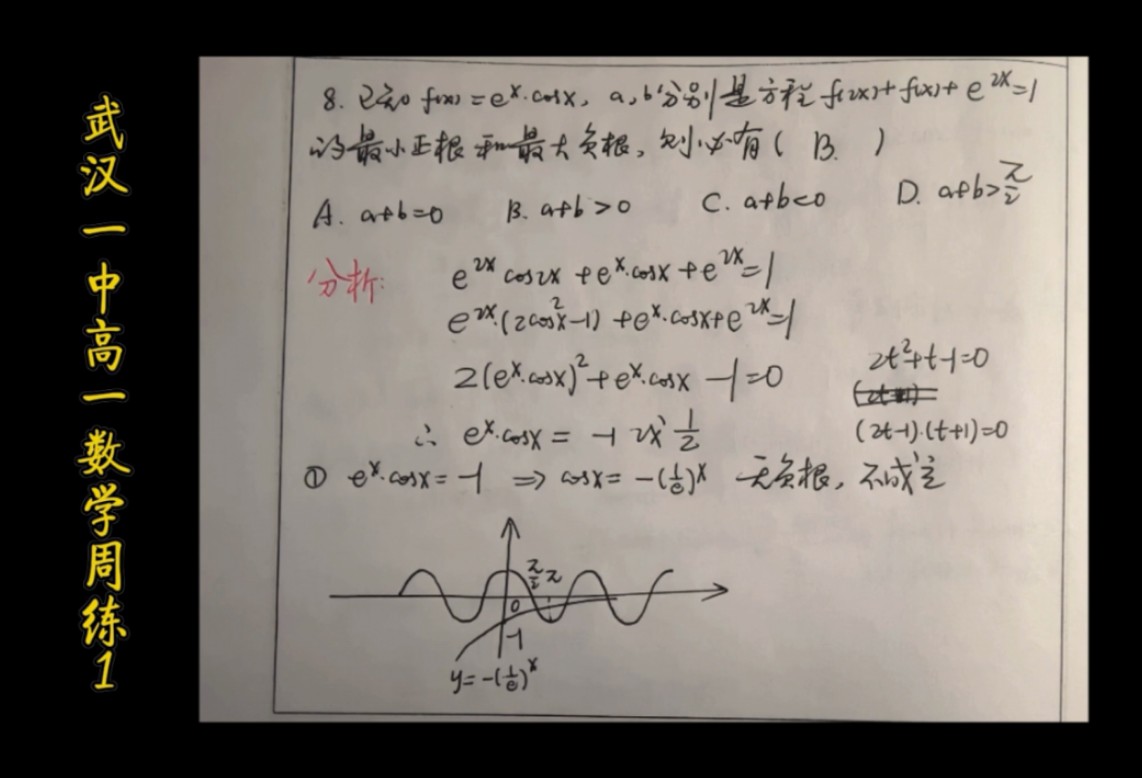 武汉一中高一数学周练1
8. 已知 f(x)=e^x·cosx, a,b分别是方程 f(2x)+f(x)+e^{2x}=1
的最小正根和最大负根, 则必有( B. )
A. a+b=0 B. a+b>0 C. a+b<0 D. a+b>π/2
分析: e^{2x}cos2x+e^x·cosx+e^{2x}=1
e^{2x}·(2cos²x-1)+e^x·cosx+e^{2x}=1
2(e^x·cosx)²+e^x·cosx-1=0 2t²+t-1=0
∴ e^x·cosx=-1 或 1/2 (2t-1)·(t+1)=0
① e^x·cosx=-1 ⇒ cosx=-(1/e)^x 无负根, 不成立
π/2 π
0
-1
y=-(1/e)^x